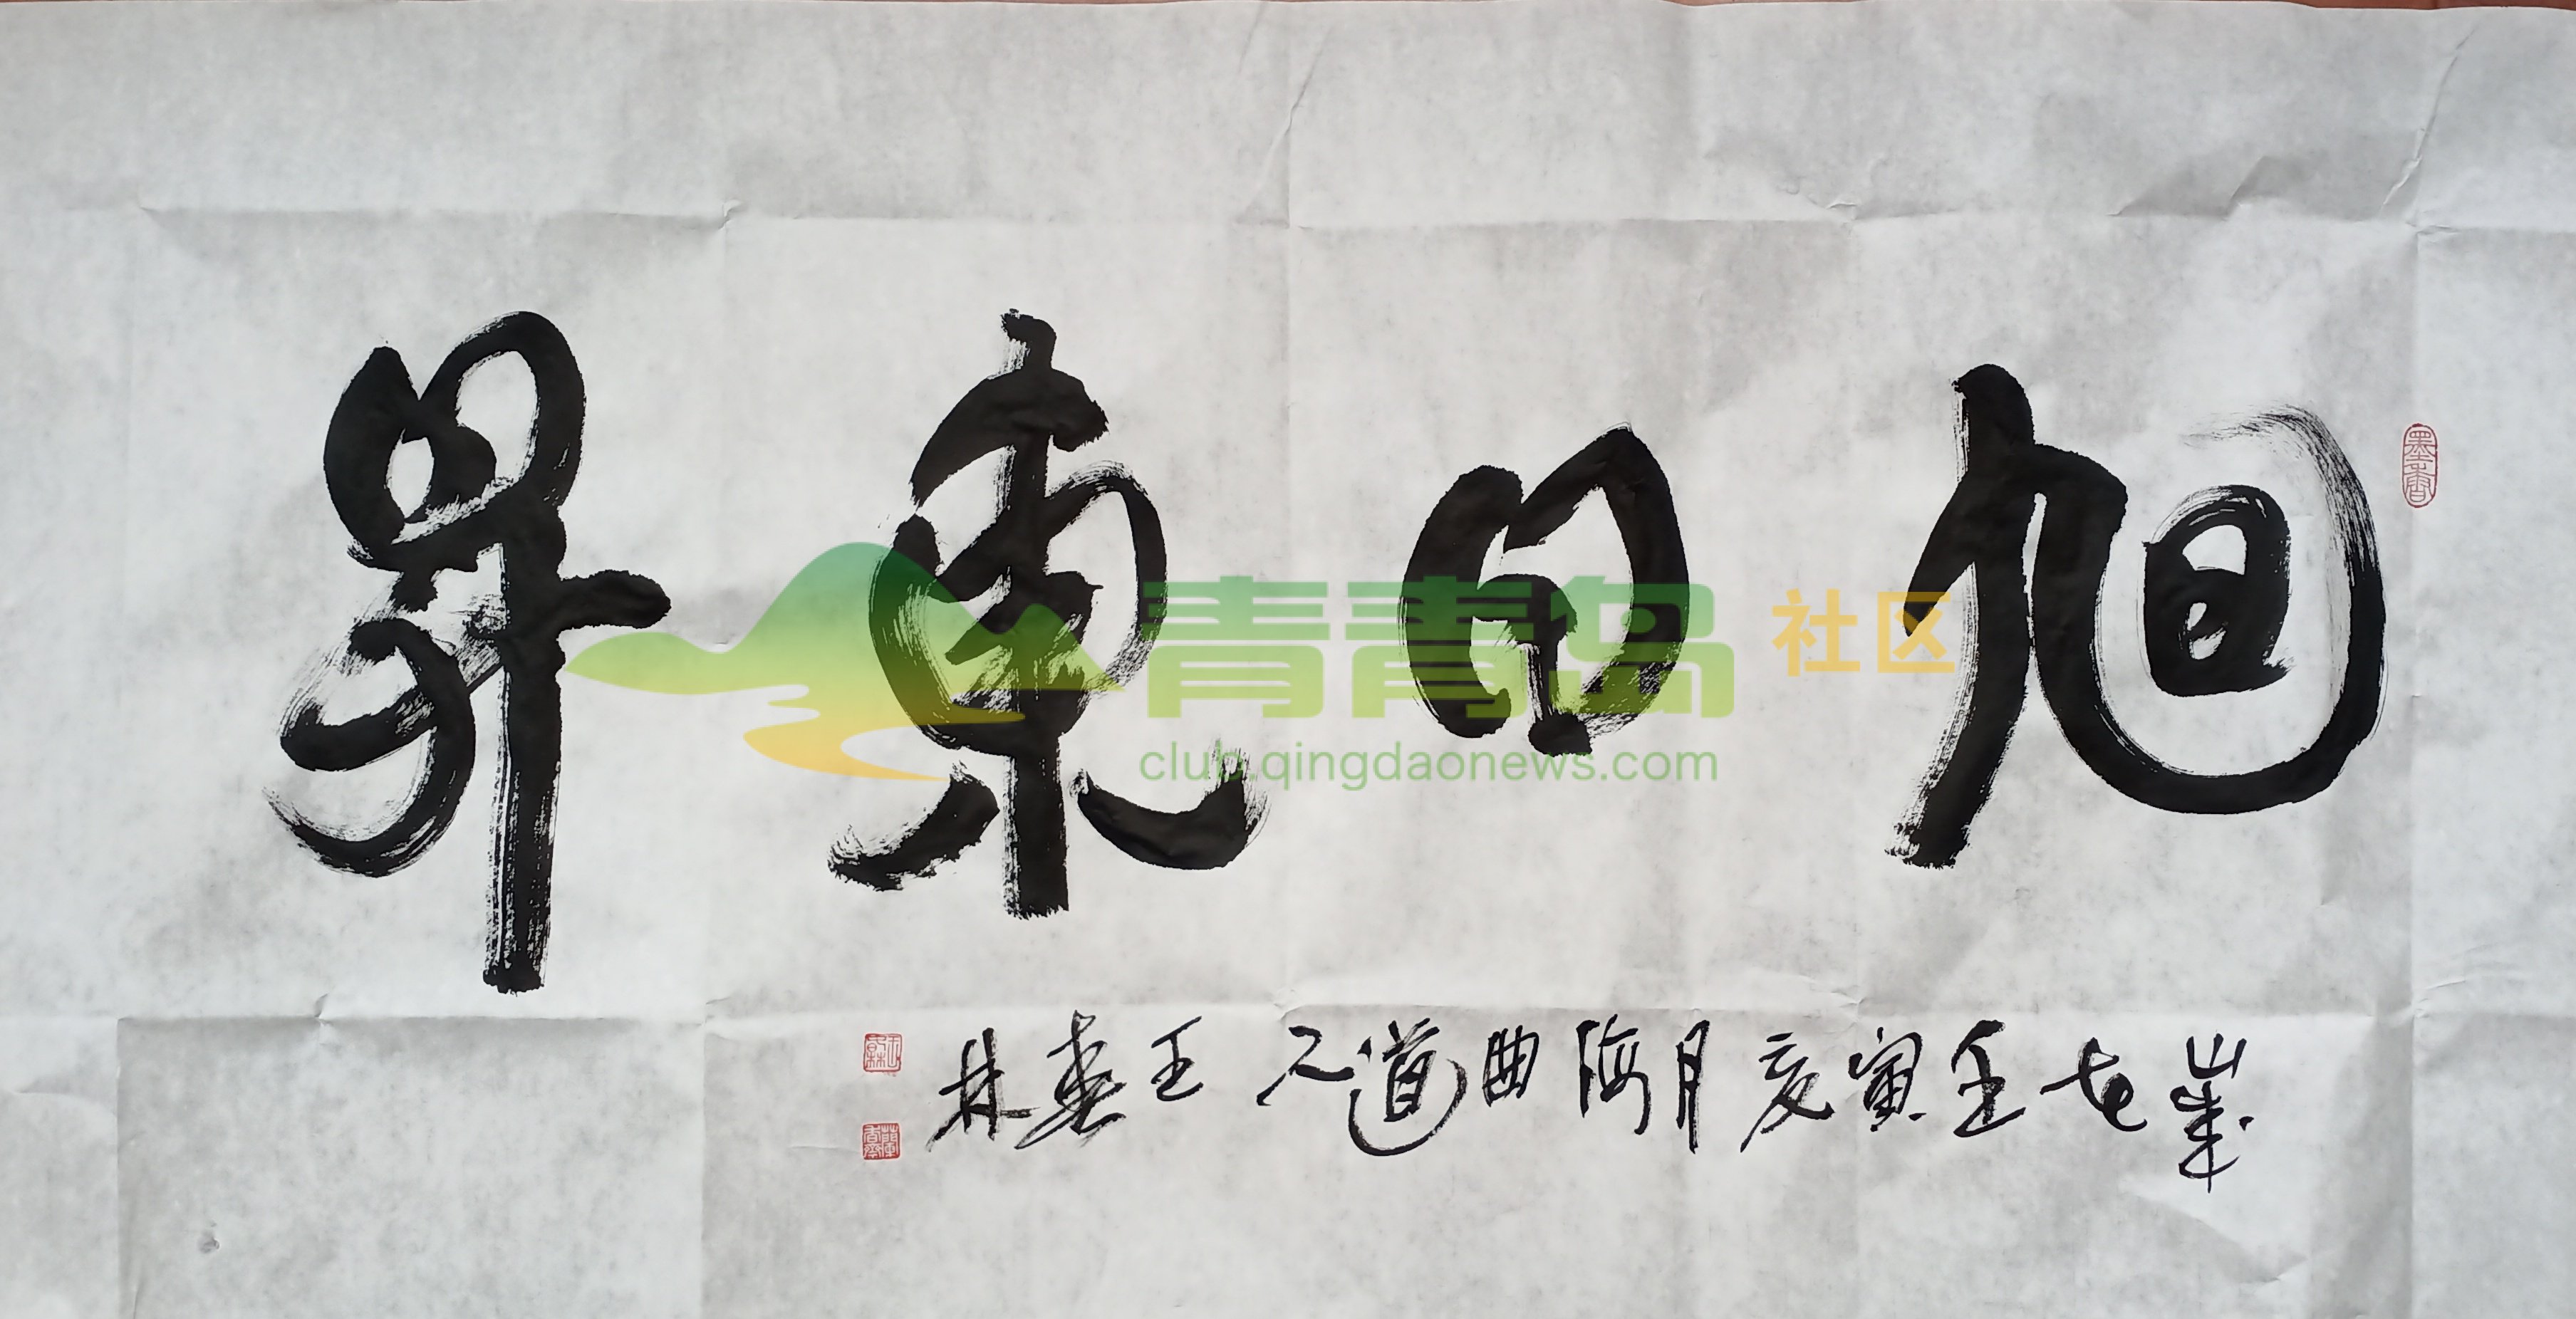 旭日東昇
歲在壬寅亥月海曲道人王春林
墨香
青青岛 社区
club.qingdaonews.com